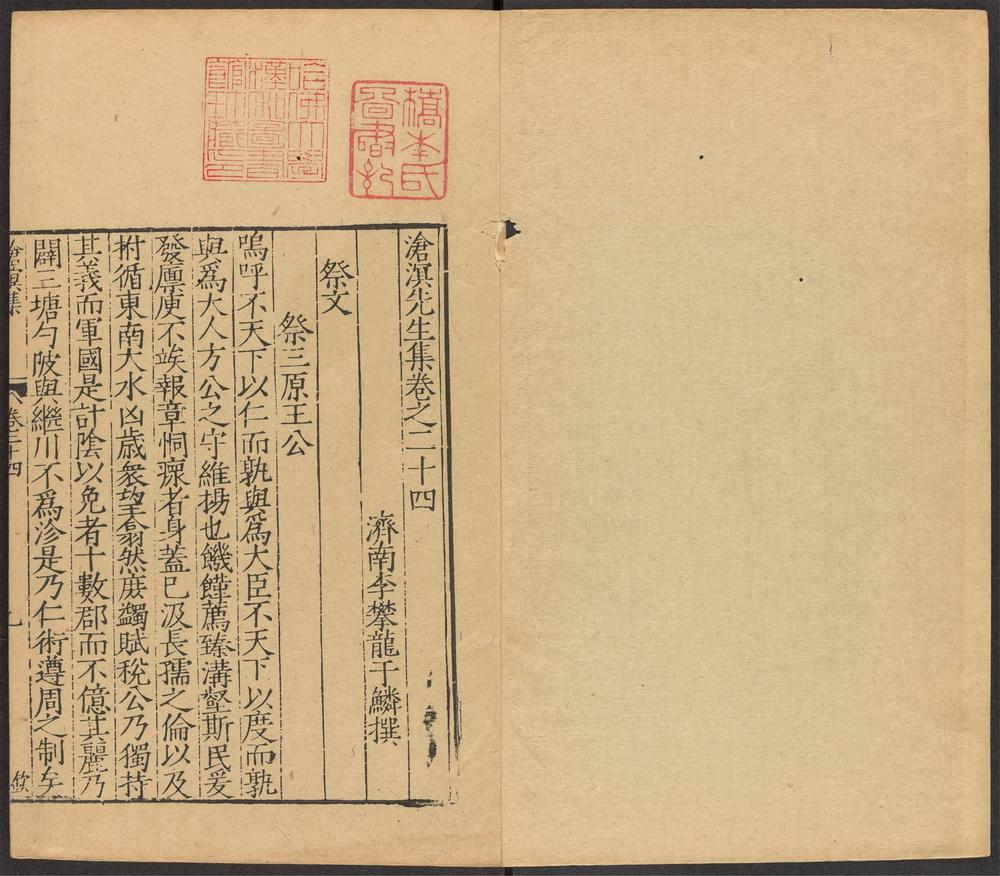 滄溟先生集卷之二十四
濟南李攀龍于鱗撰
祭文
祭三原王公
嗚呼不天下以仁而孰與爲大臣不天下以度而孰
與爲大人方公之守維揚也饑饉薦臻溝壑斯民爰
發廪庾不竢報章恫瘝者身蓋已汲長孺之倫以及
拊循東南大水凶歳衆望翕然庻蠲賦稅公乃獨持
其義而軍國是計陰以免者十數郡而不億其麗乃
闢三塘勺陂與繼川不爲沴是乃仁術遵周之制矣
滄溟集
卷二十四
一
欽
橋本氏
圖書記
哈佛大學
漢和圖書
館珍藏印